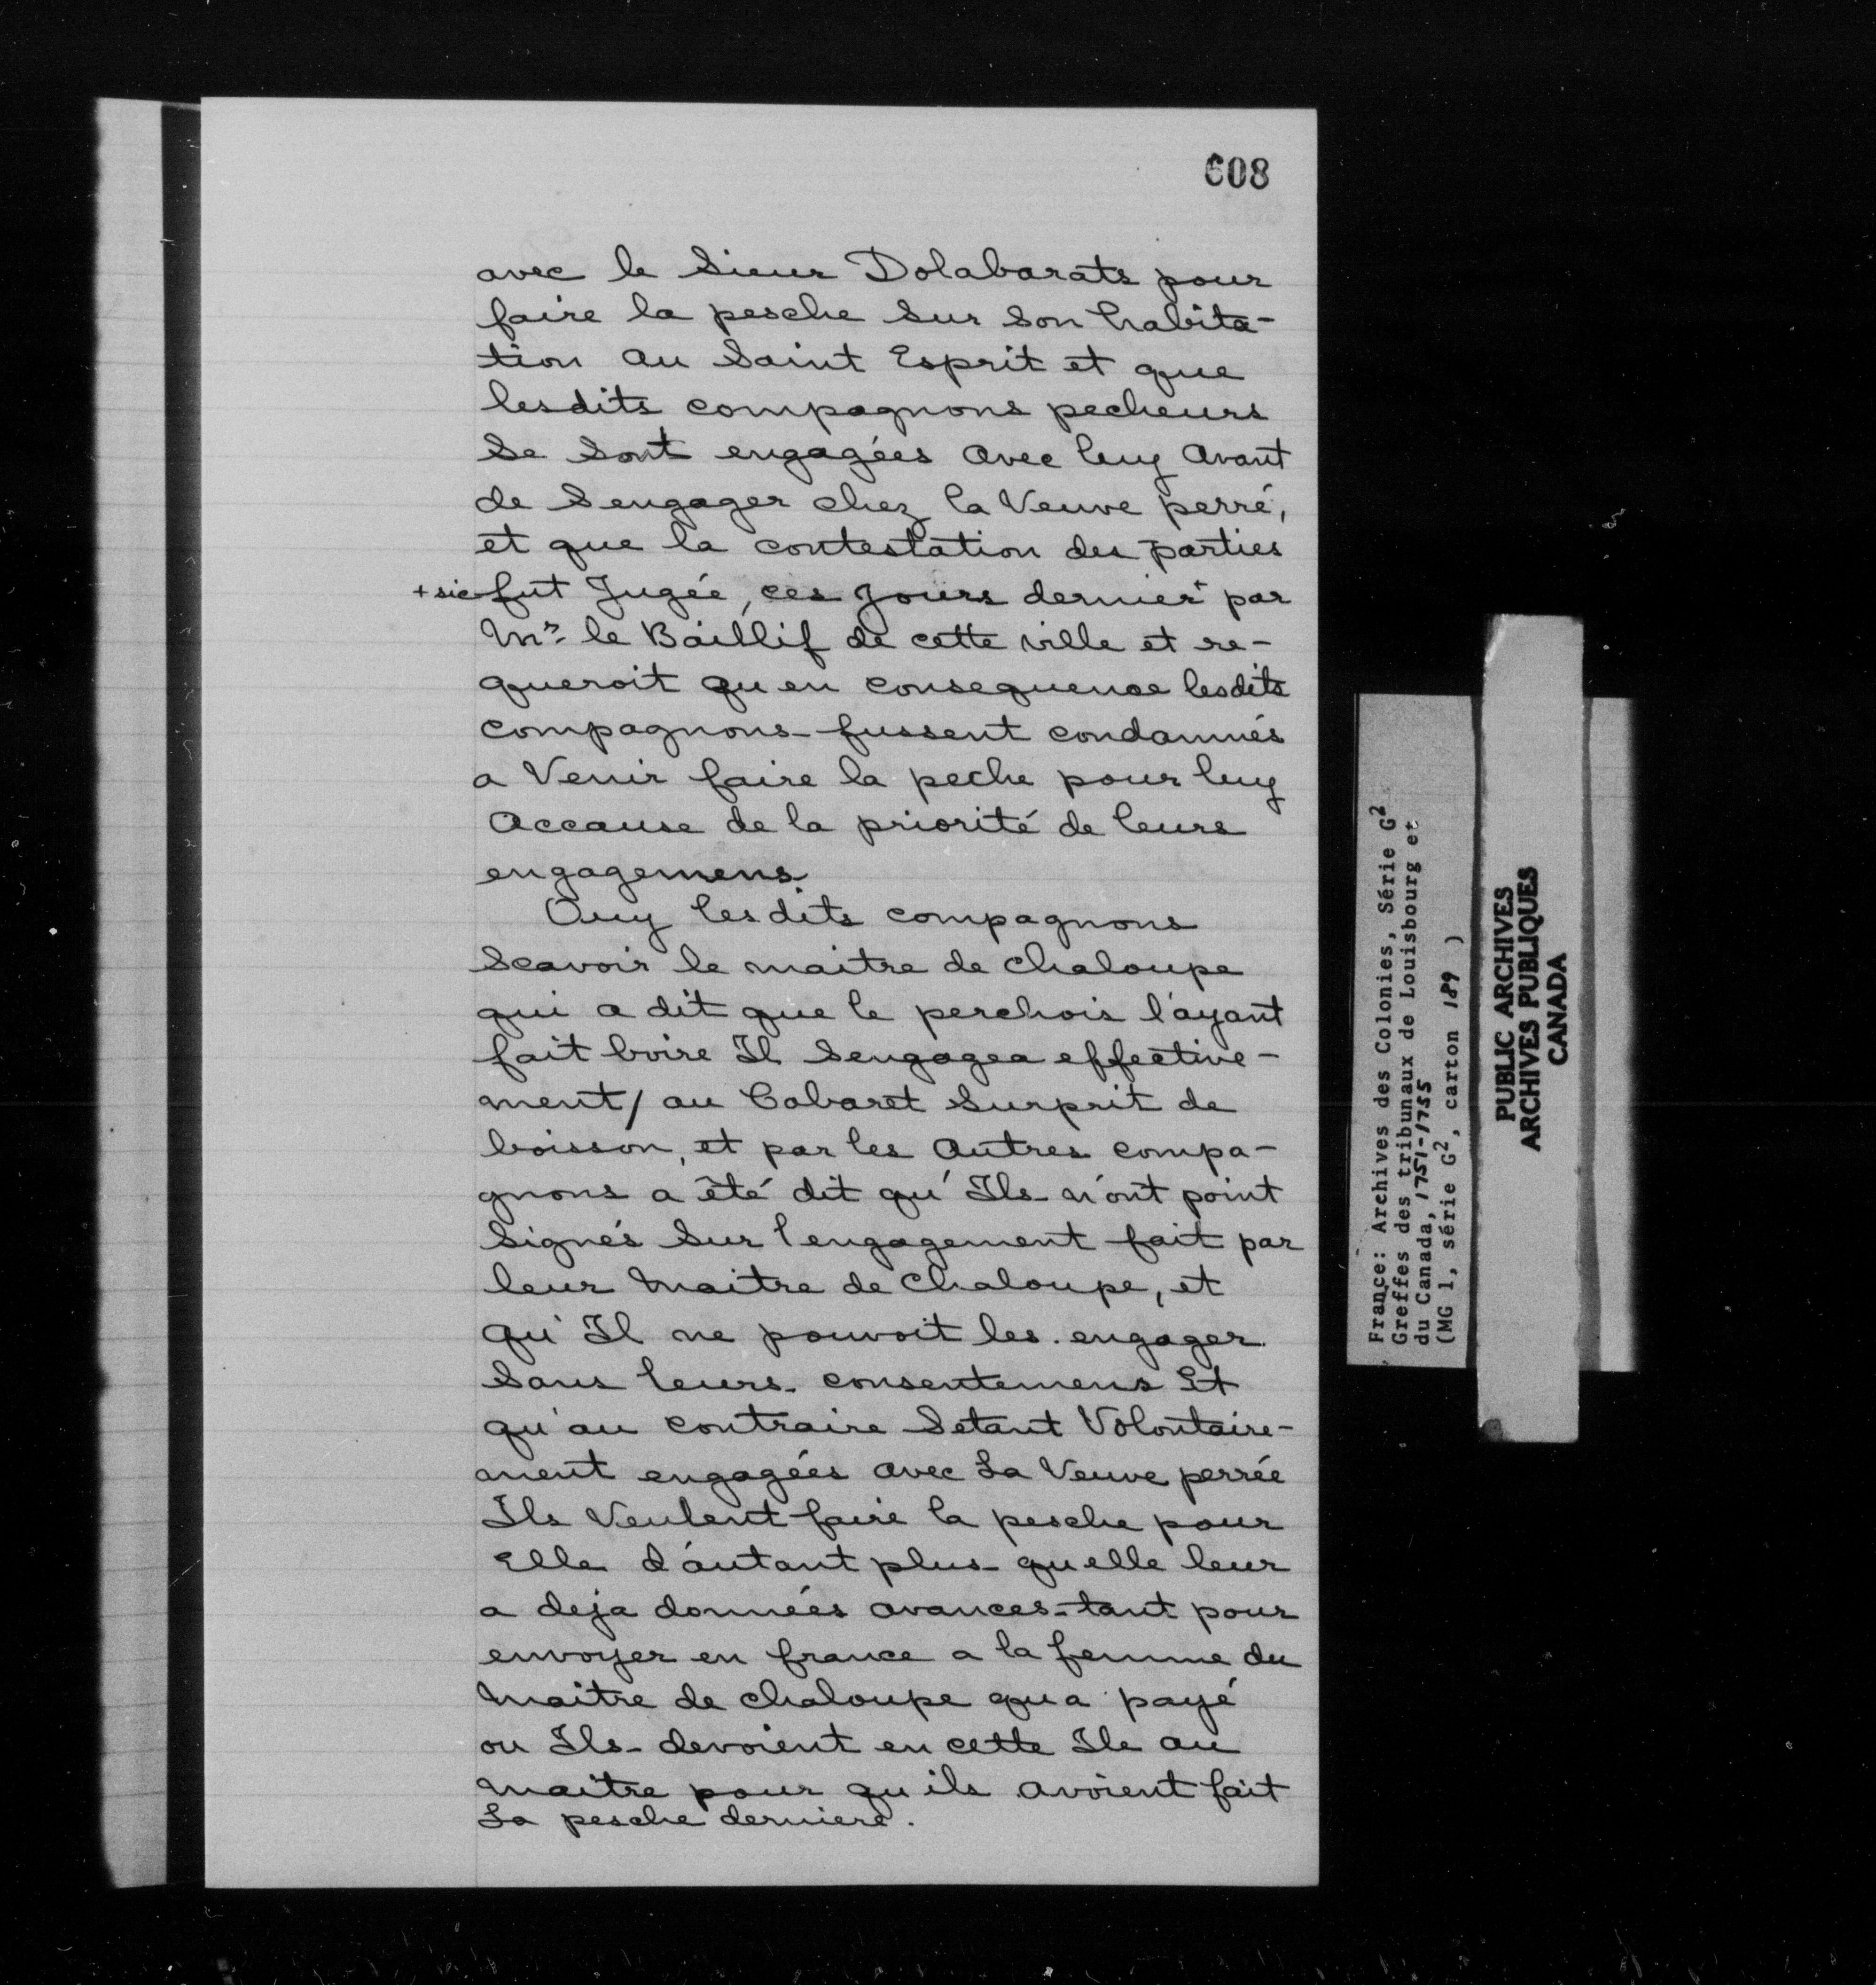 608
avec le Sieur Dolabarats pour
faire la pesche sur son habita-
tion au Saint Esprit et que
lesdits compagnons pecheurs
Se Sont engagées avec luy avant
de Sengager chez la Veuve perré,
et que la contestation des parties
+ sic fut Jugée, ces Jours dernier+ par
Mr. le Baillif de cette ville et re-
queroit qu en consequence lesdits
compagnons fussent condamnés
a Venir faire la peche pour luy
Accause de la priorité de leurs
engagemens
Ouy lesdits compagnons
Scavoir le maitre de chaloupe
qui a dit que le perchois l'ayant
fait boire Il Sengagea effective-
ment/ au Cabaret Surprit de
boisson, et par les autres compa-
gnons a été dit qu' Ils n'ont point
Signés Sur l engagement fait par
leur Maitre de Chaloupe, et
qu' Il ne pouvoit les engager
Sans leurs consentemens Et
qu'au contraire Setant Volontaire-
ment engagées avec La Veuve perrée
Ils Veulent faire la pesche pour
Elle d'autant plus qu elle leur
a deja données avances tant pour
envoyer en france a la femme du
Maitre de chaloupe qu a payé
ou Ils devoient en cette Ile au
Maitre pour qu ils avoient fait
La pesche derniere.
France: Archives des Colonies, Série G2
Greffes des tribunaux de Louisbourg et
du Canada, 1751-1755
(MG 1, série G2, carton 189 )
PUBLIC ARCHIVES
ARCHIVES PUBLIQUES
CANADA